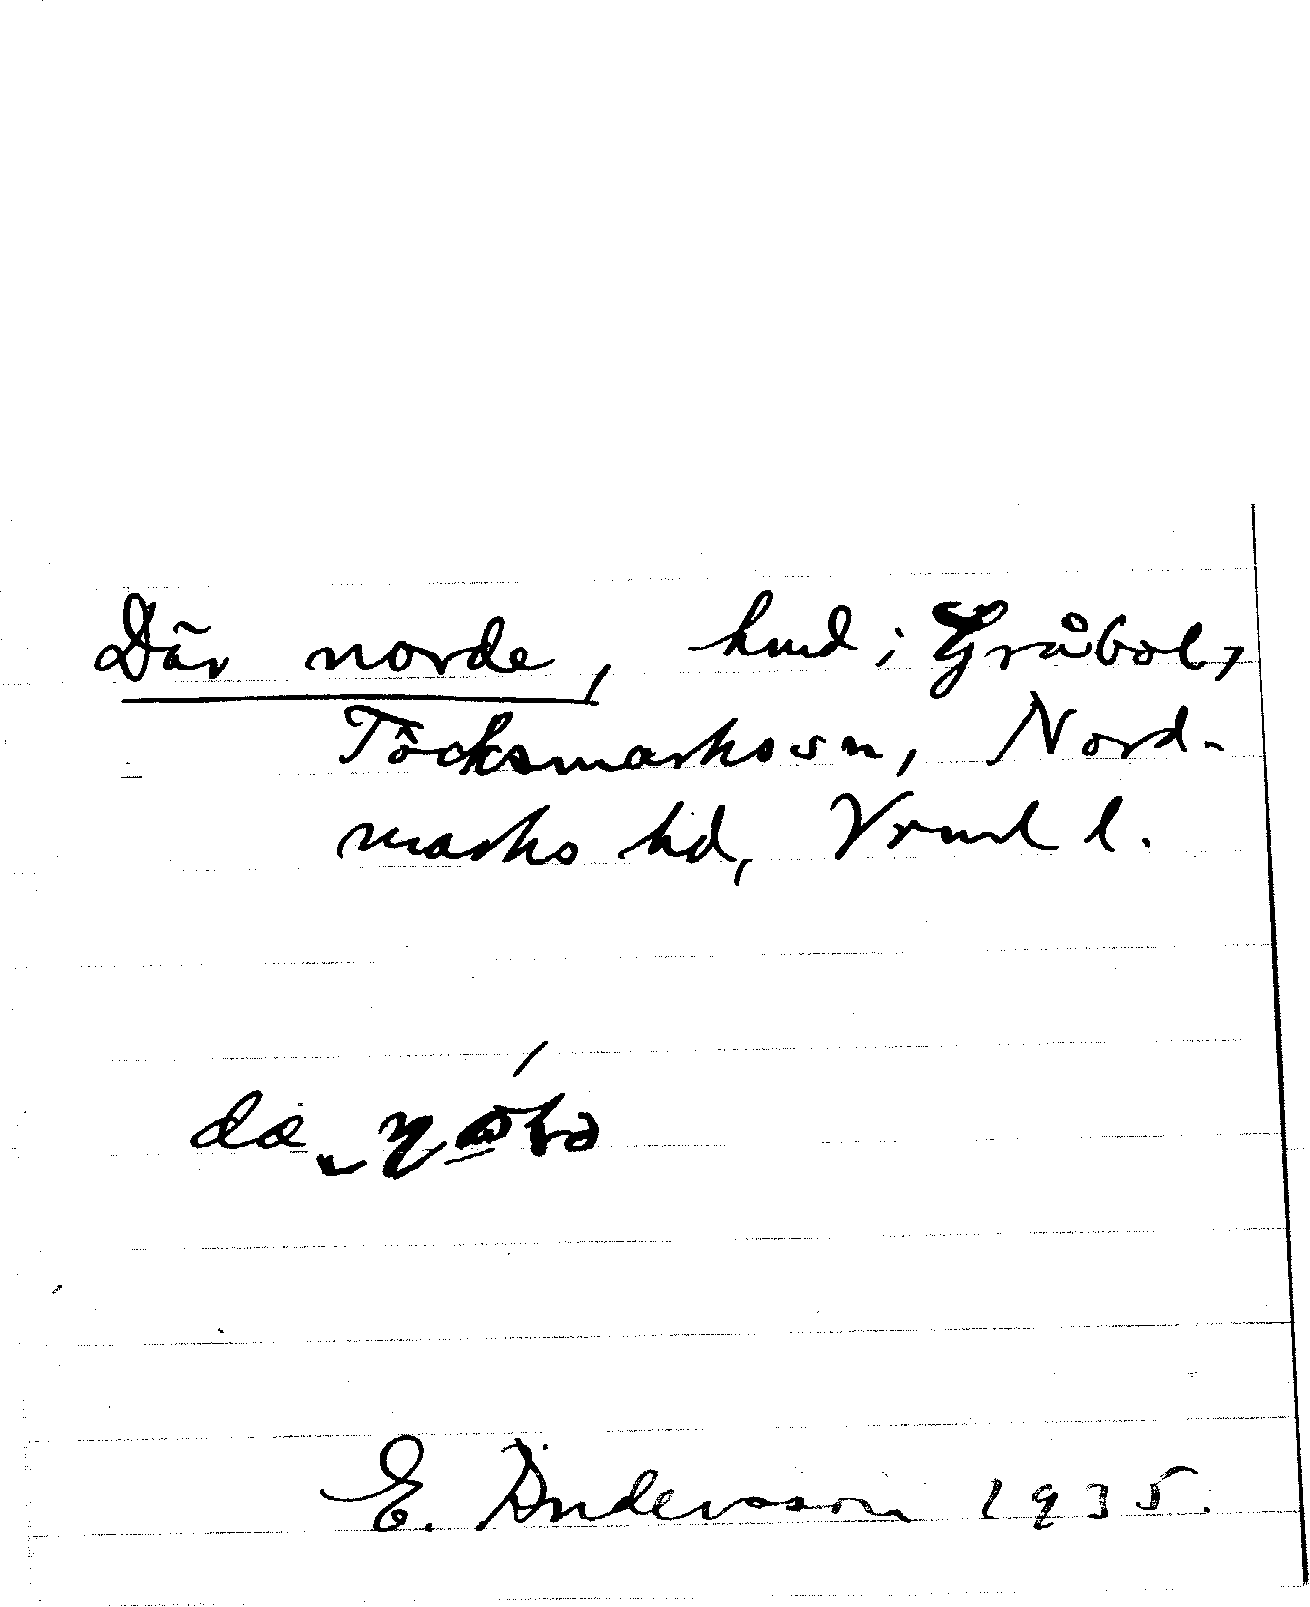 Där norde, hmd i Gråbol,
Töcksmarks sn, Nord-
marks hd, Vrml l.
E. Andersson 1935.